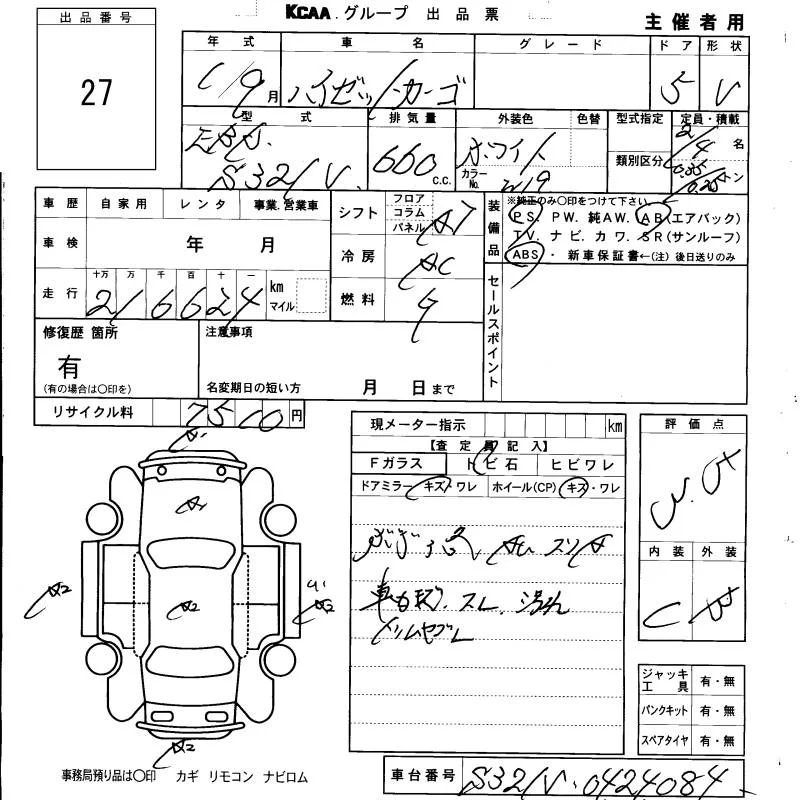 KCAA グループ 出品票
主催者用
出品番号
27
年式 車名 グレード ドア 形状
/9月 ハイゼットカーゴ 5 V
型式 排気量 外装色 色替 型式指定 定員・積載
EBD. S321V 660 c.c. ホワイト カラーNo. W19 類別区分 2/4名 0.35/0.20トン
車歴 自家用 レンタ 事業.営業車
シフト フロア コラム パネル AT
装備品 ※純正のみ〇印をつけて下さい。
PS. PW. 純AW. AB(エアバック)
TV. ナビ. カワ. SR(サンルーフ)
ABS・新車保証書←(注)後日送りのみ
車検 年 月
冷房 AC
走行 十万 万 千 百 十 一 km マイル
216624
燃料 G
セールスポイント
修復歴 箇所
有
(有の場合は〇印を)
注意事項
名変期日の短い方 月 日まで
リサイクル料 7510円
現メーター指示 km
【査定員記入】
Fガラス トビ石 ヒビワレ
ドアミラー キズ/ワレ ホイール(CP) キズ・ワレ
スリA
スレ.
評価点
内装 外装
C
A1
A1
A2
A2
A2
A2
ジャッキ工具 有・無
パンクキット 有・無
スペアタイヤ 有・無
事務局預り品は〇印 カギ リモコン ナビロム
車台番号 S321V-0424084